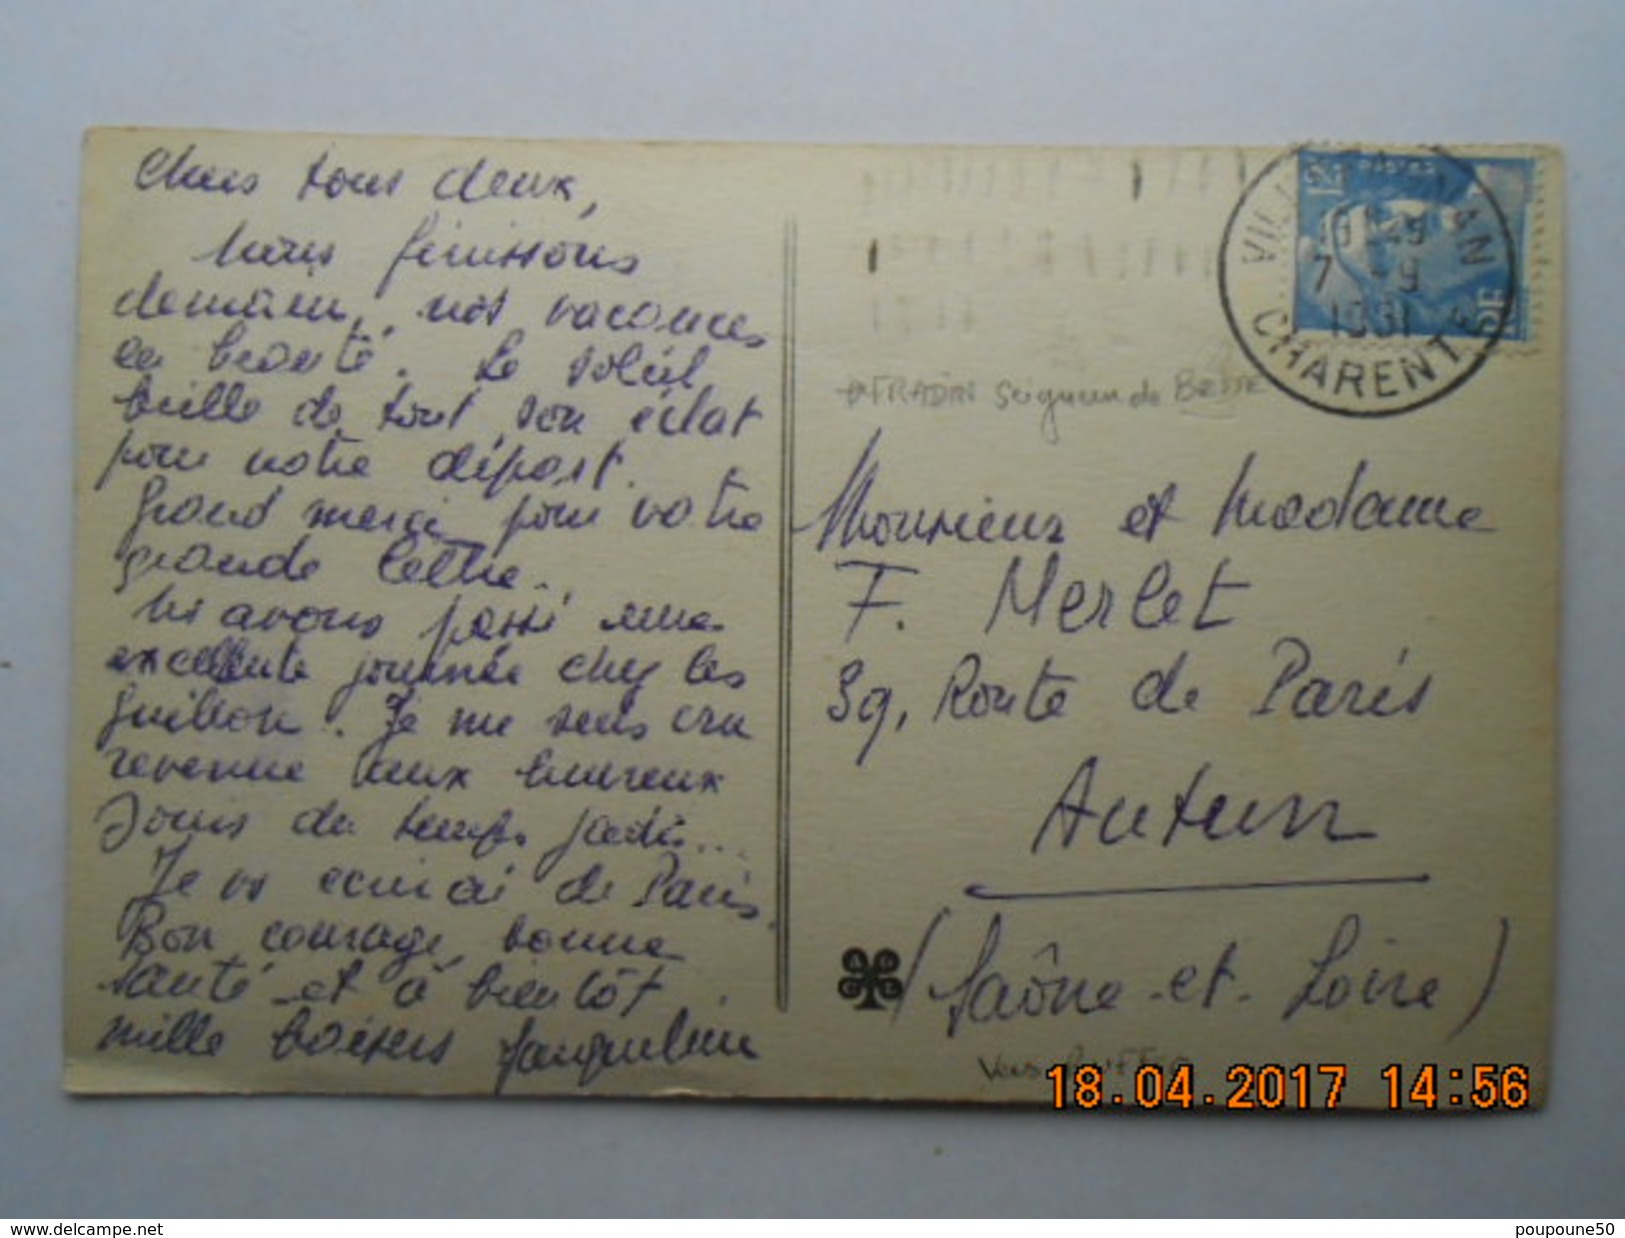 Chers tous deux,
Nous finissons
demain, nos vacances
en beauté. Le soleil
brille de tout son éclat
pour notre départ.
Grand merci pour votre
grande lettre.
Ns avons passé une
excellente journée chez les
Guillon. Je me suis cru
revenue aux heureux
jours du temps jadis...
Je vs écrirai de Paris.
Bon courage, bonne
santé et à bientôt
mille baisers Jacqueline
POSTES
7 - 9
1951
CHARENTE
FRADIN Seigneur de BESSE
Monsieur et Madame
F. Merlet
39, Route de Paris
Autun
(Saône-et-Loire)
Vers RUFFEC
18.04.2017 14:56
www.delcampe.net
poupoune50